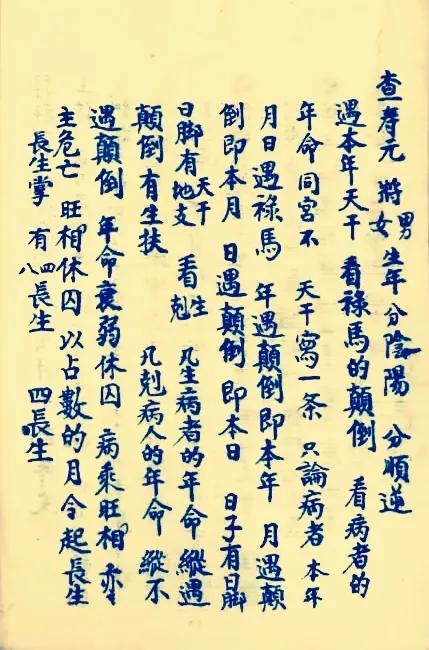 查壽元 將男女生年分陰陽 分順逆
遇本年天干 看祿馬的顛倒 看病者的
年命同宮不 天干寫一条 只論病者本年
月日遇祿馬 年遇顛倒即本年 月遇顛
倒即本月 日遇顛倒即本日 日子有日脚
日脚有天干地支 看生尅 凡生病者的年命縱遇
顛倒有生扶 凡剋病人的年命縱不
遇顛倒 年命衰弱休囚 病乘旺相亦
主危亡 旺相休囚以占數的月令起長生
長生掌 有四八長生 四長生